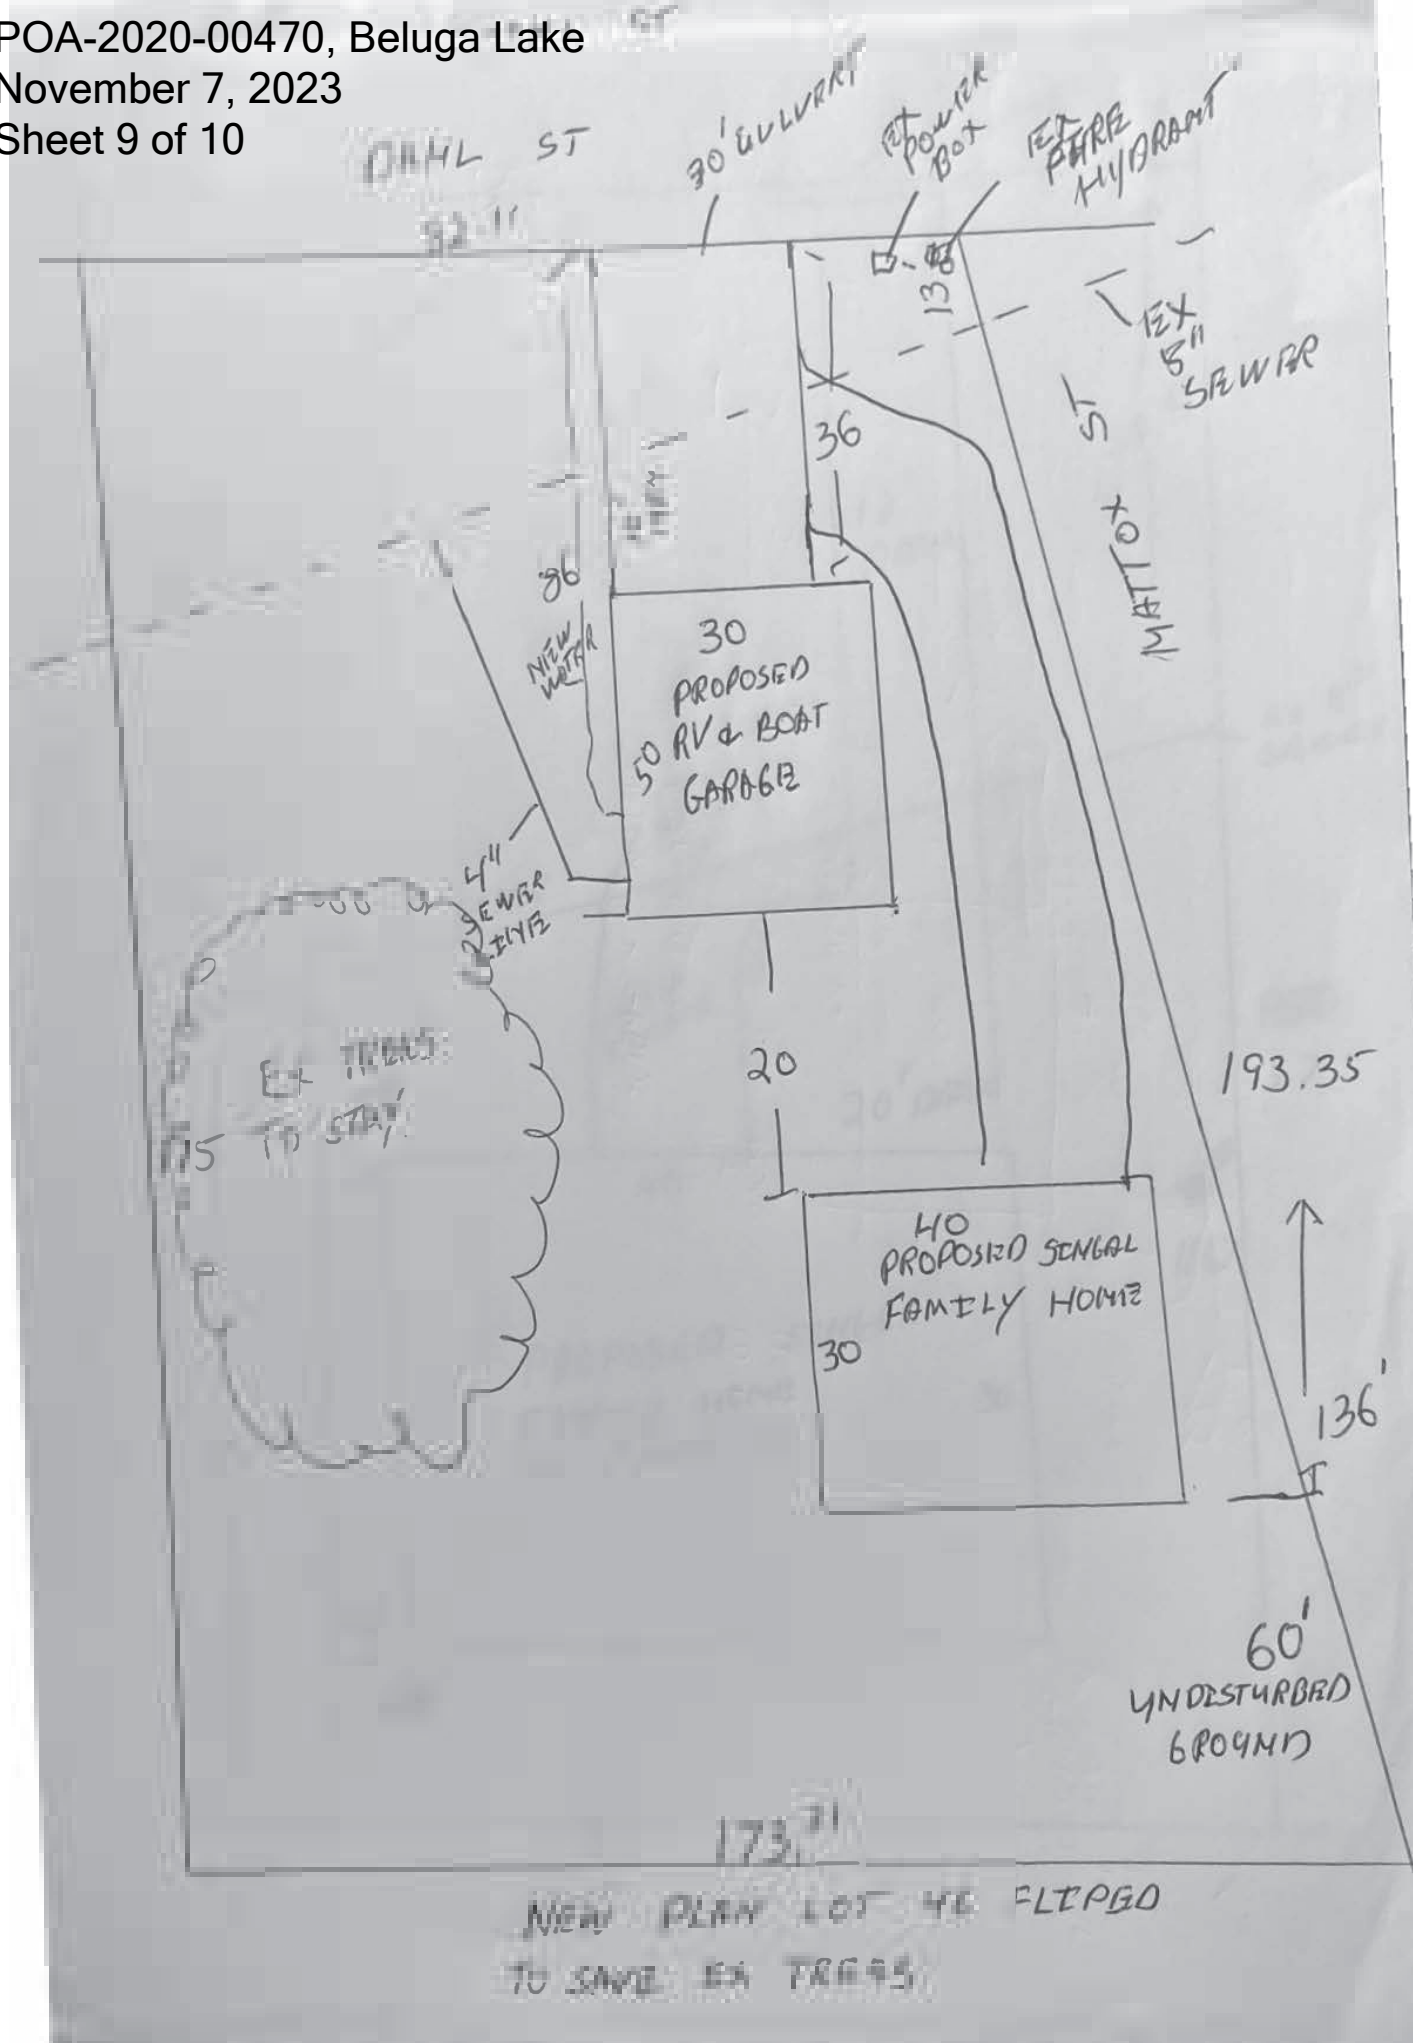 POA-2020-00470, Beluga Lake
November 7, 2023
Sheet 9 of 10
ST
DAHL ST
30' CULVERT
EX
POWER
BOX
EX
FIRE
HYDRANT
82.11
13
EX
8"
SEWER
MATTOX ST
36
86
NEW
WATER
30
PROPOSED
RV & BOAT
GARAGE
50
4"
SEWER
LINE
EX TREES
TO STAY
20
193.35
40
PROPOSED SINGAL
FAMILY HOME
30
136'
60'
UNDISTURBED
GROUND
173.71
NEW PLAN LOT FLIPED
TO SAVE EX TREES